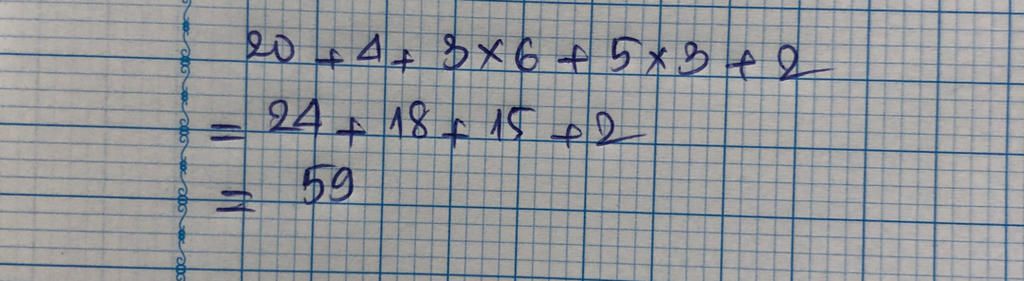 20 + 4 + 3 × 6 + 5 × 3 + 2
= 24 + 18 + 15 + 2
= 59